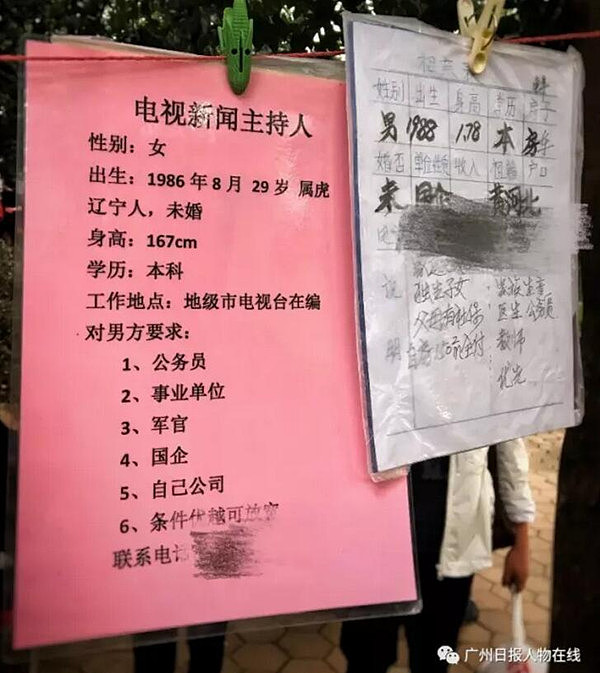 电视新闻主持人
性别：女
出生：1986年8月 29岁 属虎
辽宁人，未婚
身高：167cm
学历：本科
工作地点：地级市电视台在编
对男方要求：
1、公务员
2、事业单位
3、军官
4、国企
5、自己公司
6、条件优越可放宽
联系电话
性别 出生 身高 学历
男 1988 1.78 本 房车
婚否 单位性质 收入 户口
未 国企 黄河北
说 独生子女
父母有社保 医生 公务员
明 教师
优先
广州日报人物在线